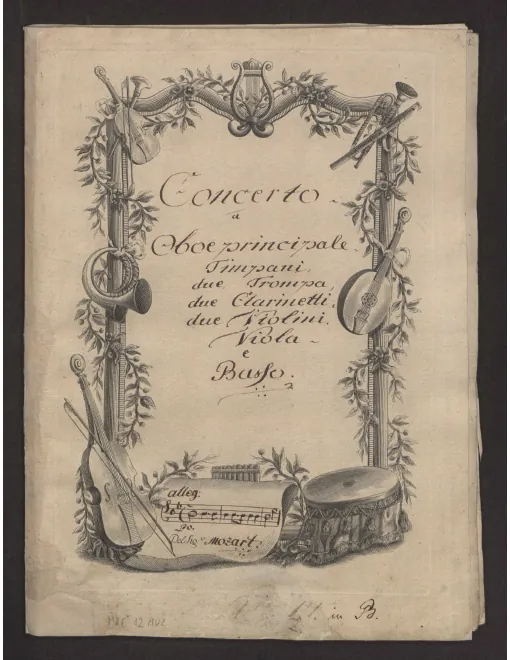 Concerto
a
Oboe principale.
Timpani,
due Trompa,
due Clarinetti,
due Violini.
Viola
e
Basso.
alleg:
po.
Del Sigr Mozart.
in B.